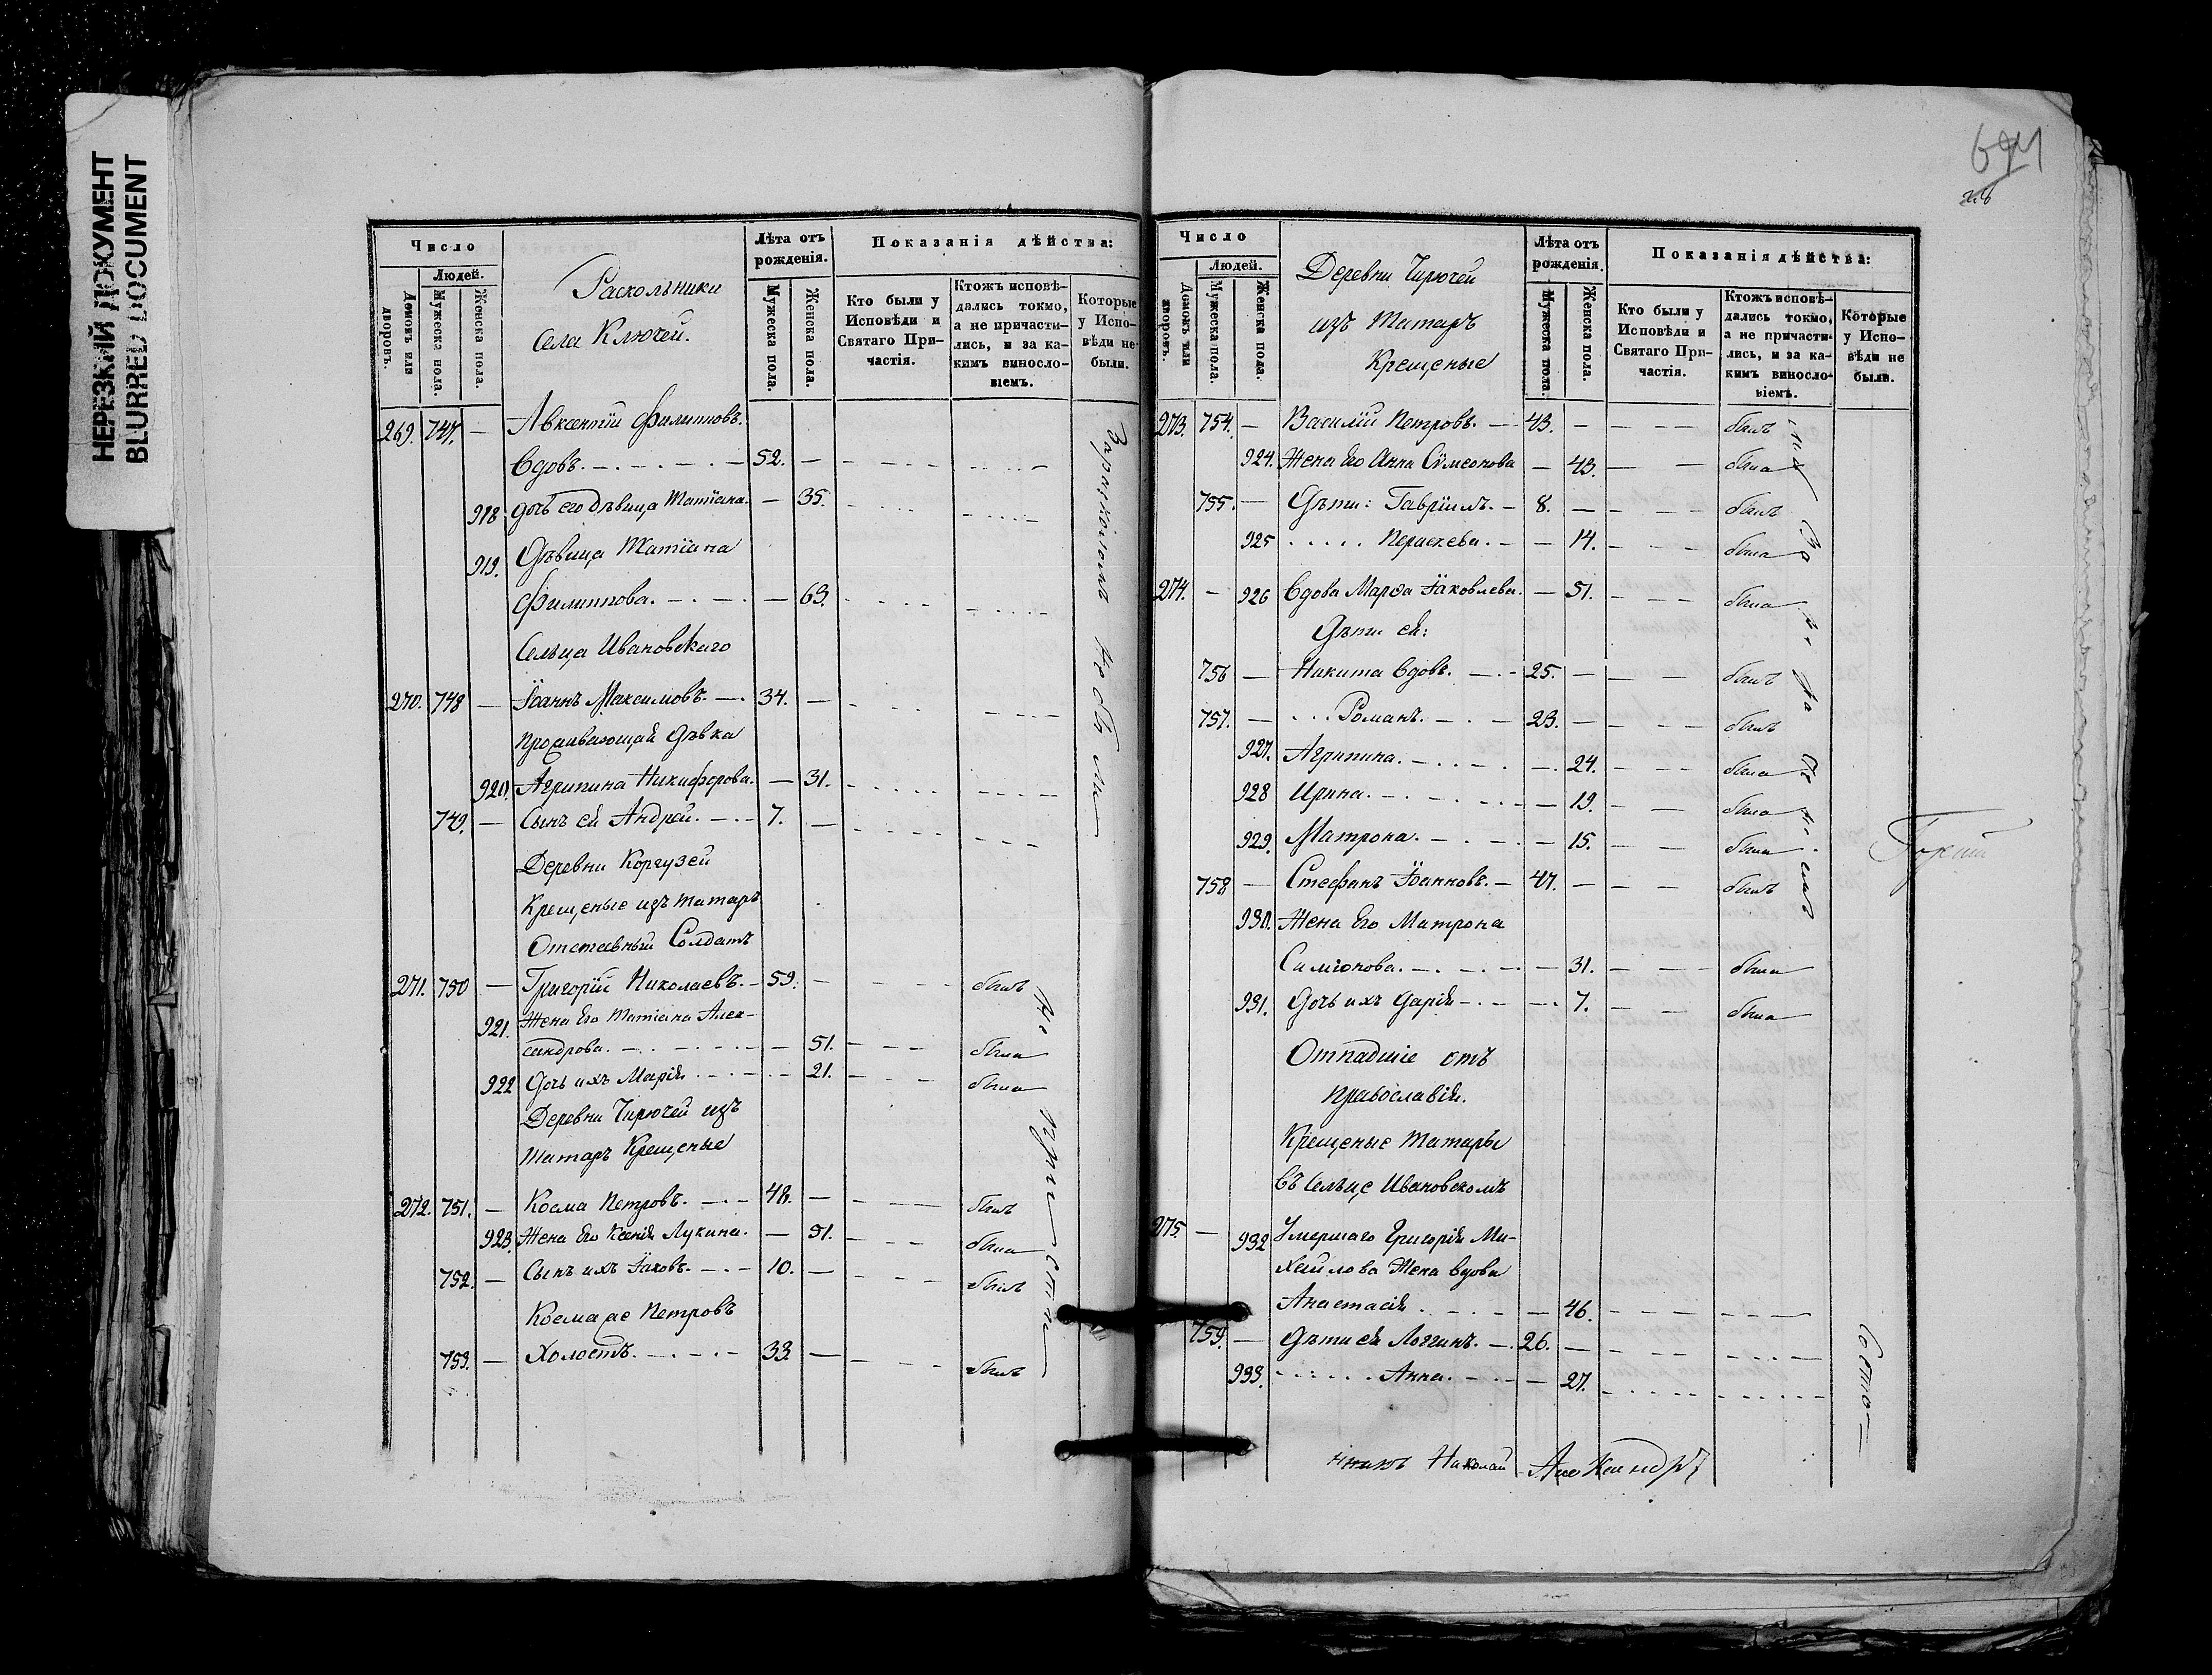 НЕРЕЗКИЙ ДОКУМЕНТ
BLURRED DOCUMENT
Число
Людей.
Домовъ или дворовъ.
Мужеска пола.
Женска пола.
Раскольники
села Ключей.
Лѣта отъ рожденія.
Мужеска пола.
Женска пола.
Показанія дѣйства:
Кто были у Исповѣди и Святаго Причастія.
Ктожъ исповѣдались токмо, а не причастились, и за какимъ винословіемъ.
Которые у Исповѣди не были.
269. 747. — Авксентій Филипповъ.
вдовъ. 52. —
918 дочь его дѣвица Татіана. — 35.
919. Дѣвица Татіана
Филиппова. — 63.
Сельца Ивановскаго
270. 748 — Іоаннъ Максимовъ. 34. —
Проживающая дѣвка
920. Агрипина Никифорова. — 31.
749. — Сынъ ей Андрей. 7. —
Деревни Коргузей
Крещеные изъ татаръ
Отставный Солдатъ
271. 750 — Григорій Николаевъ. 59. — былъ
921. Жена Его Татіана Алек-
сандрова. — 51. была
922 Дочь ихъ Марія — 21. была
Деревни Чирючей изъ
татаръ Крещеные
272. 751. — Косма Петровъ. 48. — былъ
923. Жена Его Ксенія Лукина. — 51. была
752. — Сынъ ихъ Іаковъ. 10. — былъ
Косма же Петровъ
753. — Холостъ. 33. — былъ
694
Число
Людей.
Домовъ или дворовъ.
Мужеска пола.
Женска пола.
Деревни Чирючей
изъ Татаръ
Крещеные
Лѣта отъ рожденія.
Мужеска пола.
Женска пола.
Показанія дѣйства:
Кто были у Исповѣди и Святаго Причастія.
Ктожъ исповѣдались токмо, а не причастились, и за какимъ винословіемъ.
Которые у Исповѣди не были.
273. 754. — Василій Петровъ. 43. — былъ
924. Жена Его Анна Сѵмеонова — 43. была
755. — Дѣти: Гавріилъ. 8. — былъ
925 Параскева. — 14. была
274. — 926 Вдова Марѳа Іаковлева. — 51. была
Дѣти ей:
756 — Никита вдовъ. 25. — былъ
757. — Романъ. 23. — былъ
927. Агрипина. — 24. была
928 Ирина. — 19. была
929. Матрона. — 15. была
758 — Стефанъ Іоанновъ. 47. — былъ
930. Жена Его Матрона
Симіонова. — 31. была
931. Дочь ихъ Дарія — 7. была
Отпадшіе отъ
Православія.
Крещеные Татары
въ Сельце Ивановскомъ
275. — 932 Умершаго Григорія Ми-
хайлова Жена вдова
Анастасія — 46.
759. — Дѣти ея Логгинъ. 26. —
933. Анна. — 27.
Николай